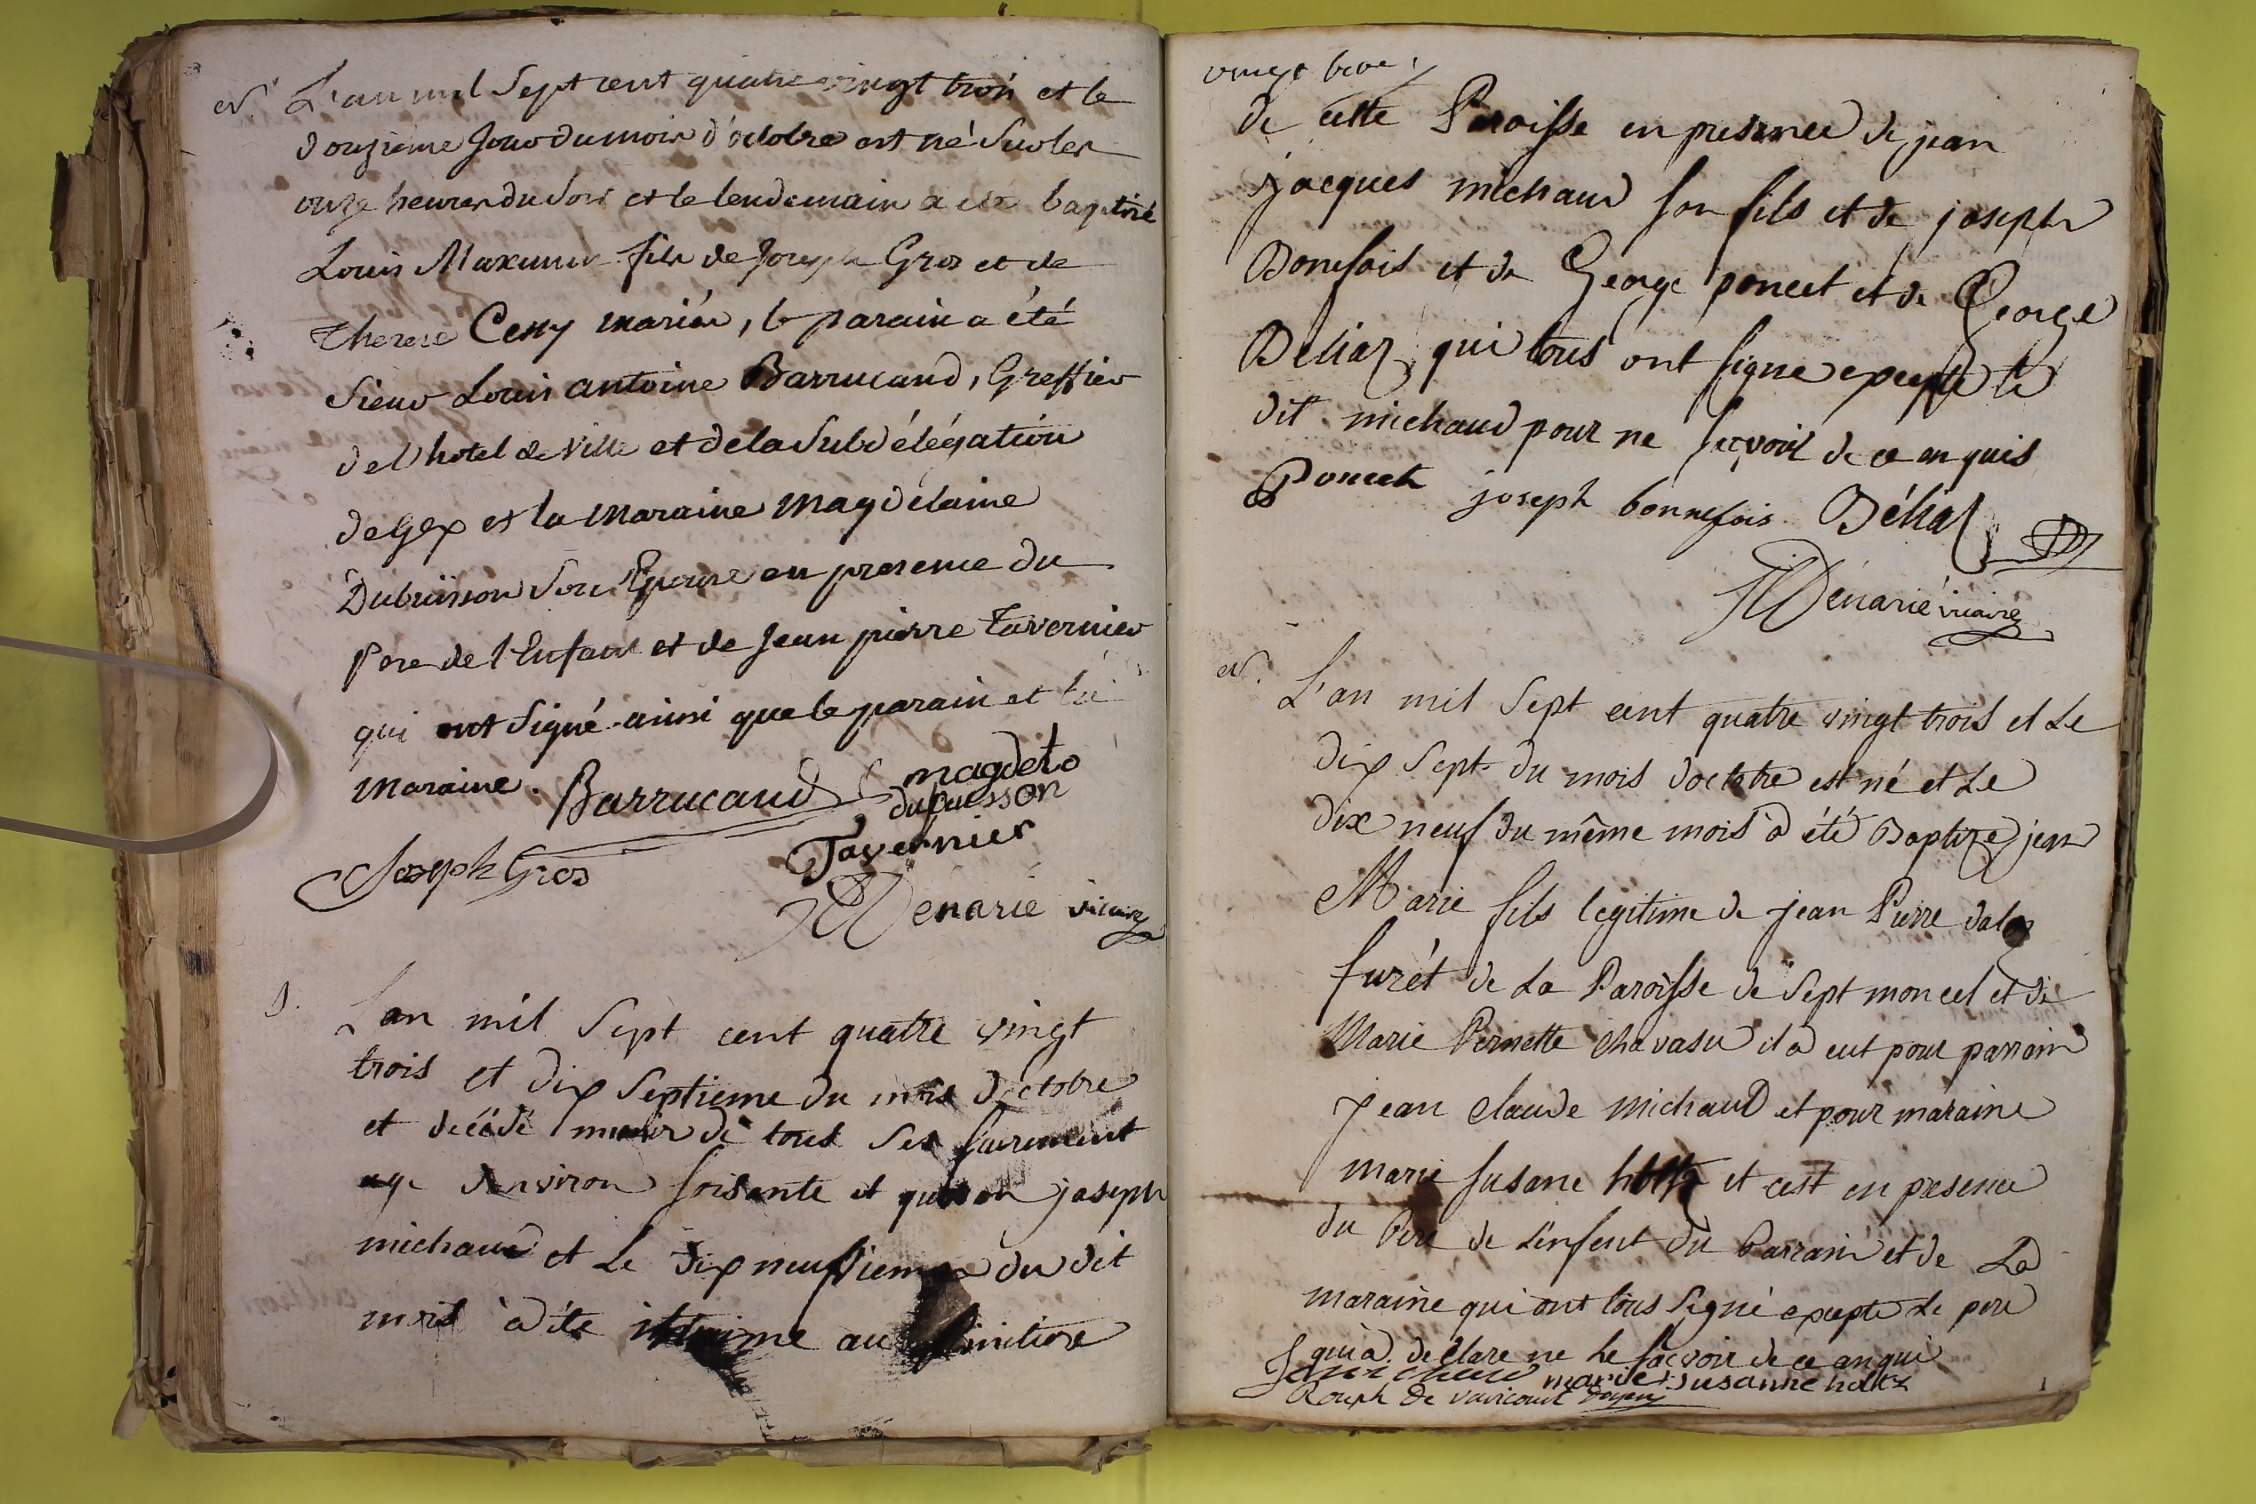 N. L'an mil Sept cent quatre vingt trois et le
douzieme Jour du mois d'octobre est né Sur les
onze heures du Soir et le lendemain a été baptisé
Louis Maximin fils de Joseph Gros et de
Therese Cetty mariés, le parain a été
Sieur Louis antoine Barrucand, Greffier
de l'hotel de Ville et de la Subdélégation
de Gex et la maraine magdelaine
Dubuisson Son Epouse en presence du
Pere de l'Enfant et de Jean pierre Tavernier
qui ont Signé ainsi que le parain et la
maraine. Barrucand magdelo
dubuisson
Tavernier
Joseph Gros
Dénarié vicaire
S. Lan mil Sept cent quatre vingt
trois et dix Septieme du mois doctobre
et decédé muni de tous Ses Sacrement
age denviron soisante et joseph
michaud et Le dix neufvieme du dit
mois à été au Cimitiere
vingt trois
de cette Paroisse en presence de jean
jacques michaud son fils et de joseph
Bonefois et de George poncet et de George
Deliaz qui tous ont signe excepte le
dit michaud pour ne sçavoir de ce enquis
Poncet joseph bonnefois Déliaz
Dénarié vicaire
N. L'an mil Sept cent quatre vingt trois et Le
dix Sept du mois doctobre est né et Le
dix neuf du même mois à été Baptize jean
Marie fils legitime de jean Pierre daloz
furét de La Paroisse de Sept moncel et de
Marie Pernette Chavasu il a eut pour parrain
jean claude michaud et pour maraine
marie susane holtz et cest en presence
du Pere de L'enfent du Parrain et de La
maraine qui ont tous Signé excepte Le pere
qui à declare ne Le sçavoir de ce anqui
marie Susanne holtz
Rouph de varicourt Doyen